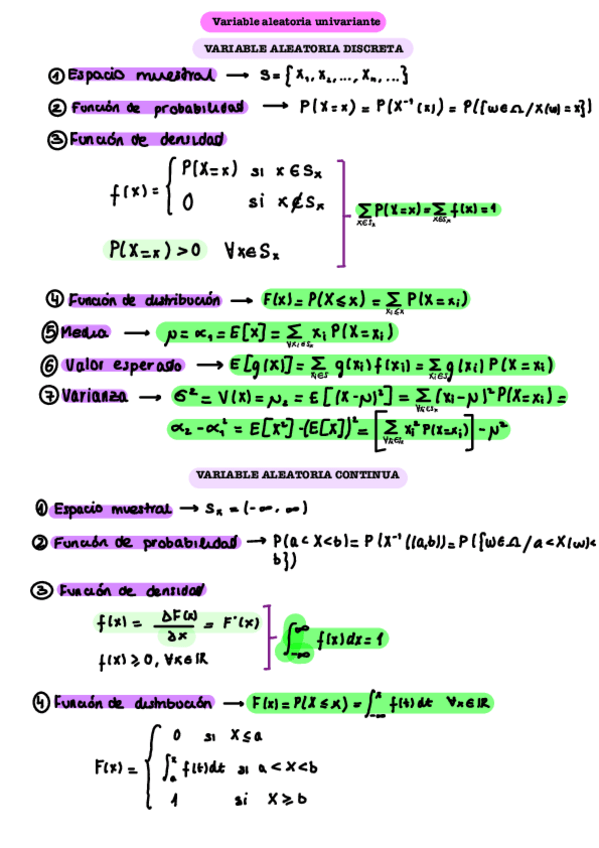 Variable aleatoria univariante
VARIABLE ALEATORIA DISCRETA
① Espacio muestral → S = {x₁, x₂, ..., xₙ, ...}
② Función de probabilidad → P(X=x) = P(X⁻¹(x)) = P({ω∈Ω/X(ω)=x})
③ Función de densidad
f(x) = { P(X=x) si x∈Sₓ
0 si x∉Sₓ
∑ₓ∈Sₓ P(X=x) = ∑ₓ∈Sₓ f(x) = 1
P(X=x) > 0 ∀x∈Sₓ
④ Función de distribución → F(x) = P(X≤x) = ∑xᵢ≤x P(X=xᵢ)
⑤ Media → μ = α₁ = E[X] = ∑∀xᵢ∈Sₓ xᵢ P(X=xᵢ)
⑥ Valor esperado → E[g(X)] = ∑xᵢ∈S g(xᵢ) f(xᵢ) = ∑xᵢ∈S g(xᵢ) P(X=xᵢ)
⑦ Varianza → σ² = V(X) = μ₂ = E[(X-μ)²] = ∑∀xᵢ∈Sₓ (xᵢ-μ)² P(X=xᵢ) =
α₂ - α₁² = E[X²] - (E[X])² = [∑∀xᵢ∈Sₓ xᵢ² P(X=xᵢ)] - μ²
VARIABLE ALEATORIA CONTINUA
① Espacio muestral → Sₓ = (-∞, ∞)
② Función de probabilidad → P(a<X<b) = P(X⁻¹((a,b)) = P({ω∈Ω/a<X(ω)<
b})
③ Función de densidad
f(x) = ΔF(x)/∂x = F'(x)
f(x) ≥ 0, ∀x∈ℝ
∫₋∞^∞ f(x)dx = 1
④ Función de distribución → F(x) = P(X≤x) = ∫₋∞^x f(t)dt ∀x∈ℝ
F(x) = { 0 si X≤a
∫ₐ^x f(t)dt si a<X<b
1 si X≥b